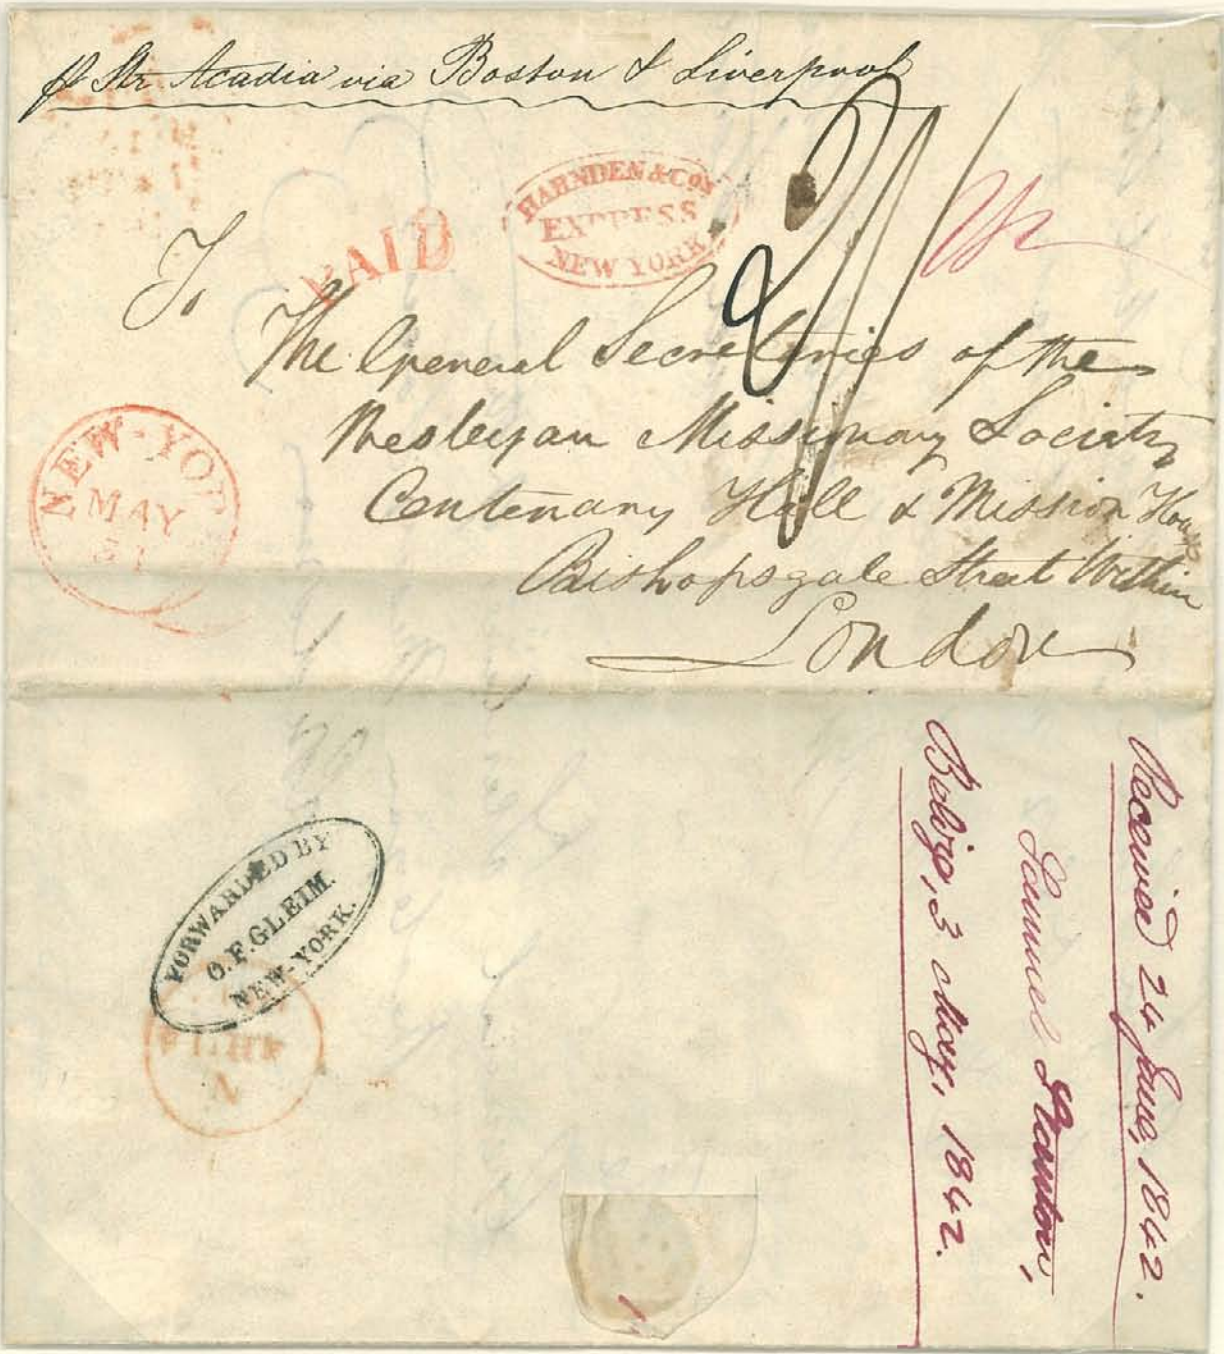 p Str Acadia via Boston & Liverpool
PAID
HARNDEN & Cos
EXPRESS
NEW YORK
To
The General Secretaries of the
Wesleyan Missionary Society
Centenary Hall & Mission House
Bishopsgate Street Within
London
NEW-YORK
MAY
31
FORWARDED BY
O.F.GLEIM.
NEW-YORK.
Received 24 June, 1842.
Samuel
Belize, 3 May, 1842.